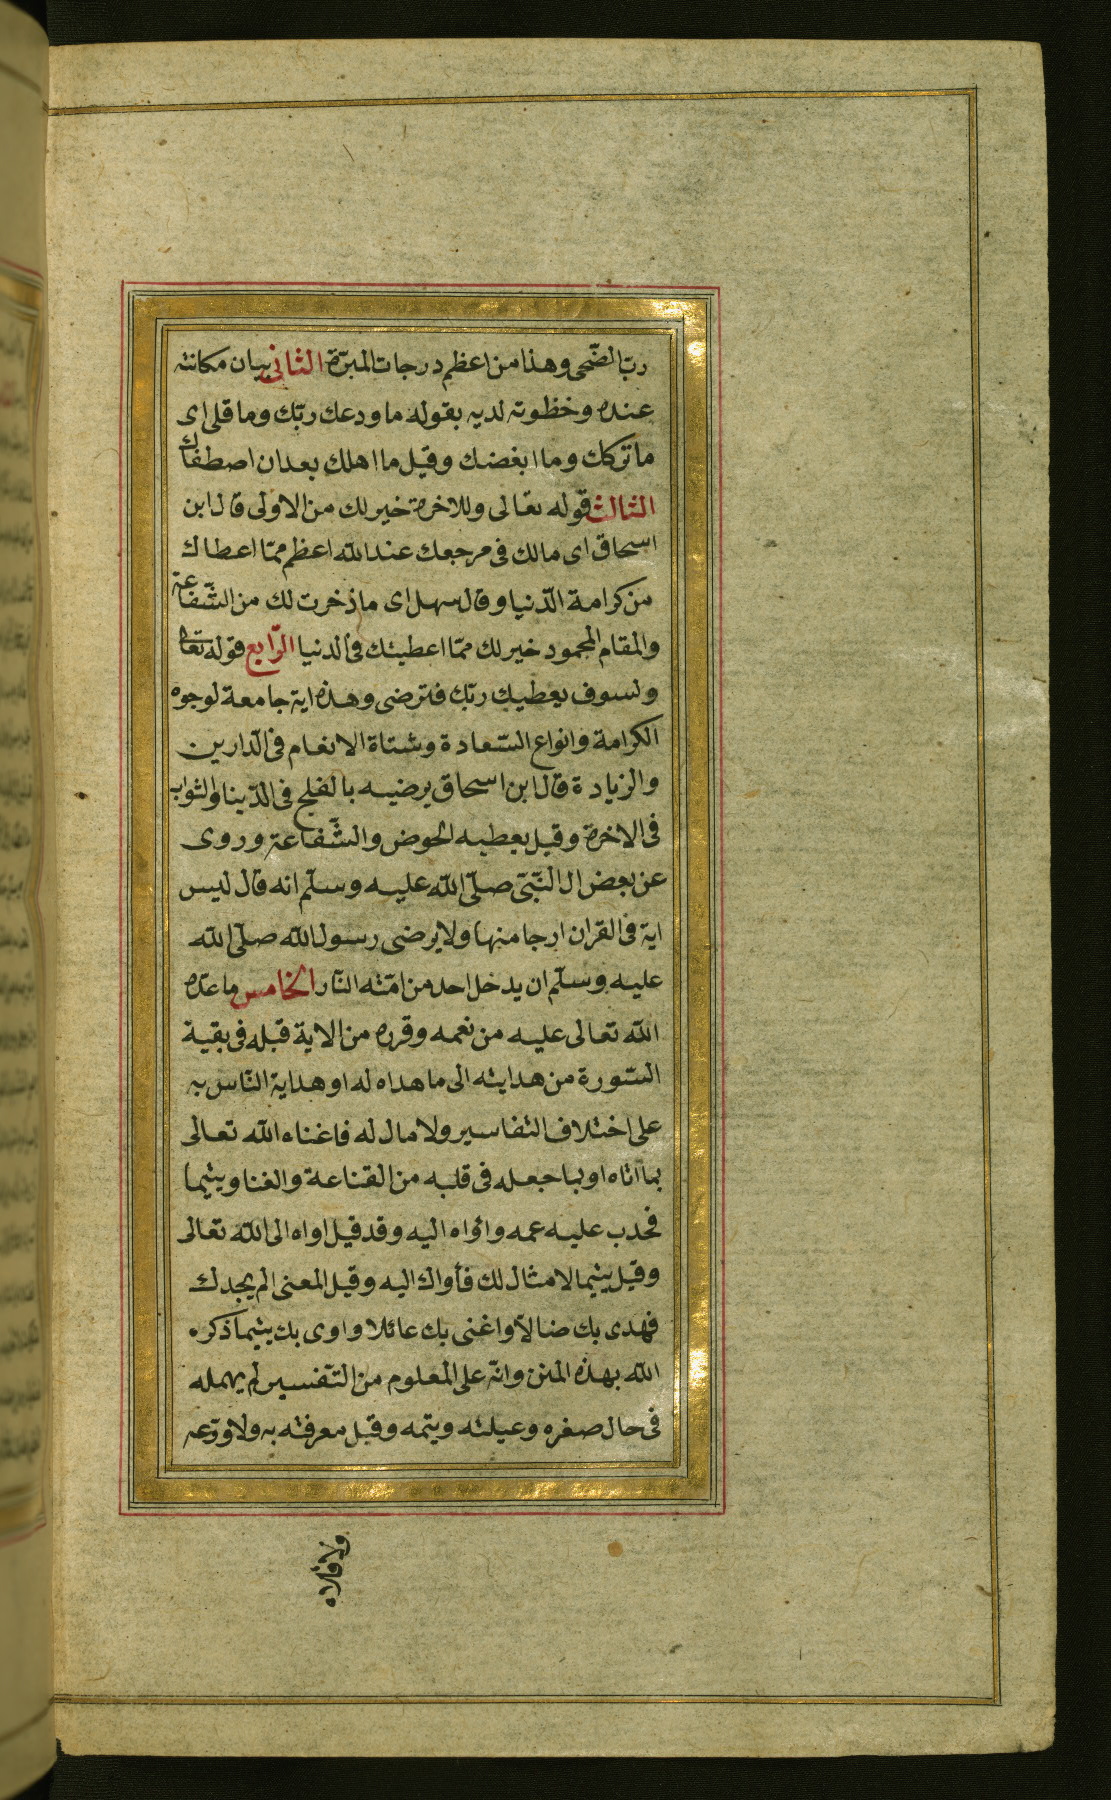 ربّ الضّحى وهذا من اعظم درجات المبرّة الثانى بيان مكانته
عنده وخظوته لديه بقوله ما ودعك ربّك وما قلى اى
ما تركك وما ابغضك وقيل ما اهلك بعد ان اصطفاك
الثالث قوله تعالى وللاخرة خير لك من الاولى قال ابن
اسحاق اى مالك فى مرجعك عند الله اعظم ممّا اعطاك
من كرامة الدّنيا وقال سهل اى ما ذخرت لك من الشّفاعة
والمقام المحمود خير لك ممّا اعطيتك فى الدنيا الرّابع قوله تعالى
ولسوف يعطيك ربّك فترضى وهذه اية جامعة لوجوه
الكرامة وانواع السّعادة وشتاة الانعام فى الدّارين
والزيادة قال ابن اسحاق يرضيه بالفلج فى الدّينا والثواب
فى الاخرة وقيل يعطيه الحوض والشّفاعة وروى
عن بعض ال النّبىّ صلّى الله عليه وسلّم انه قال ليس
اية فى القران ارجا منها ولا يرضى رسول الله صلّى الله
عليه وسلّم ان يدخل احد من امّته النّار الخامس ما عدّه
الله تعالى عليه من نعمه وقرره من الاية قبله فى بقية
السّورة من هدايته الى ما هداه له او هداية النّاس به
على اختلاف التفاسير ولا مال له فاغناه الله تعالى
بما آتاه او بما جعله فى قلبه من القناعة والغنا ويتيما
فحدب عليه عمه وآواه اليه وقد قيل اواه الى الله تعالى
وقيل يتيما لا مثال لك فأواك اليه وقيل المعنى الم يجدك
فهدى بك ضالاّ واغنى بك عائلا واوى بك يتيما ذكره
الله بهذه المنن وانّه على المعلوم من التّفسير لم يهمله
فى حال صغره وعيلته ويتمه وقبل معرفته به ولا ودّعه
ولا قلاه